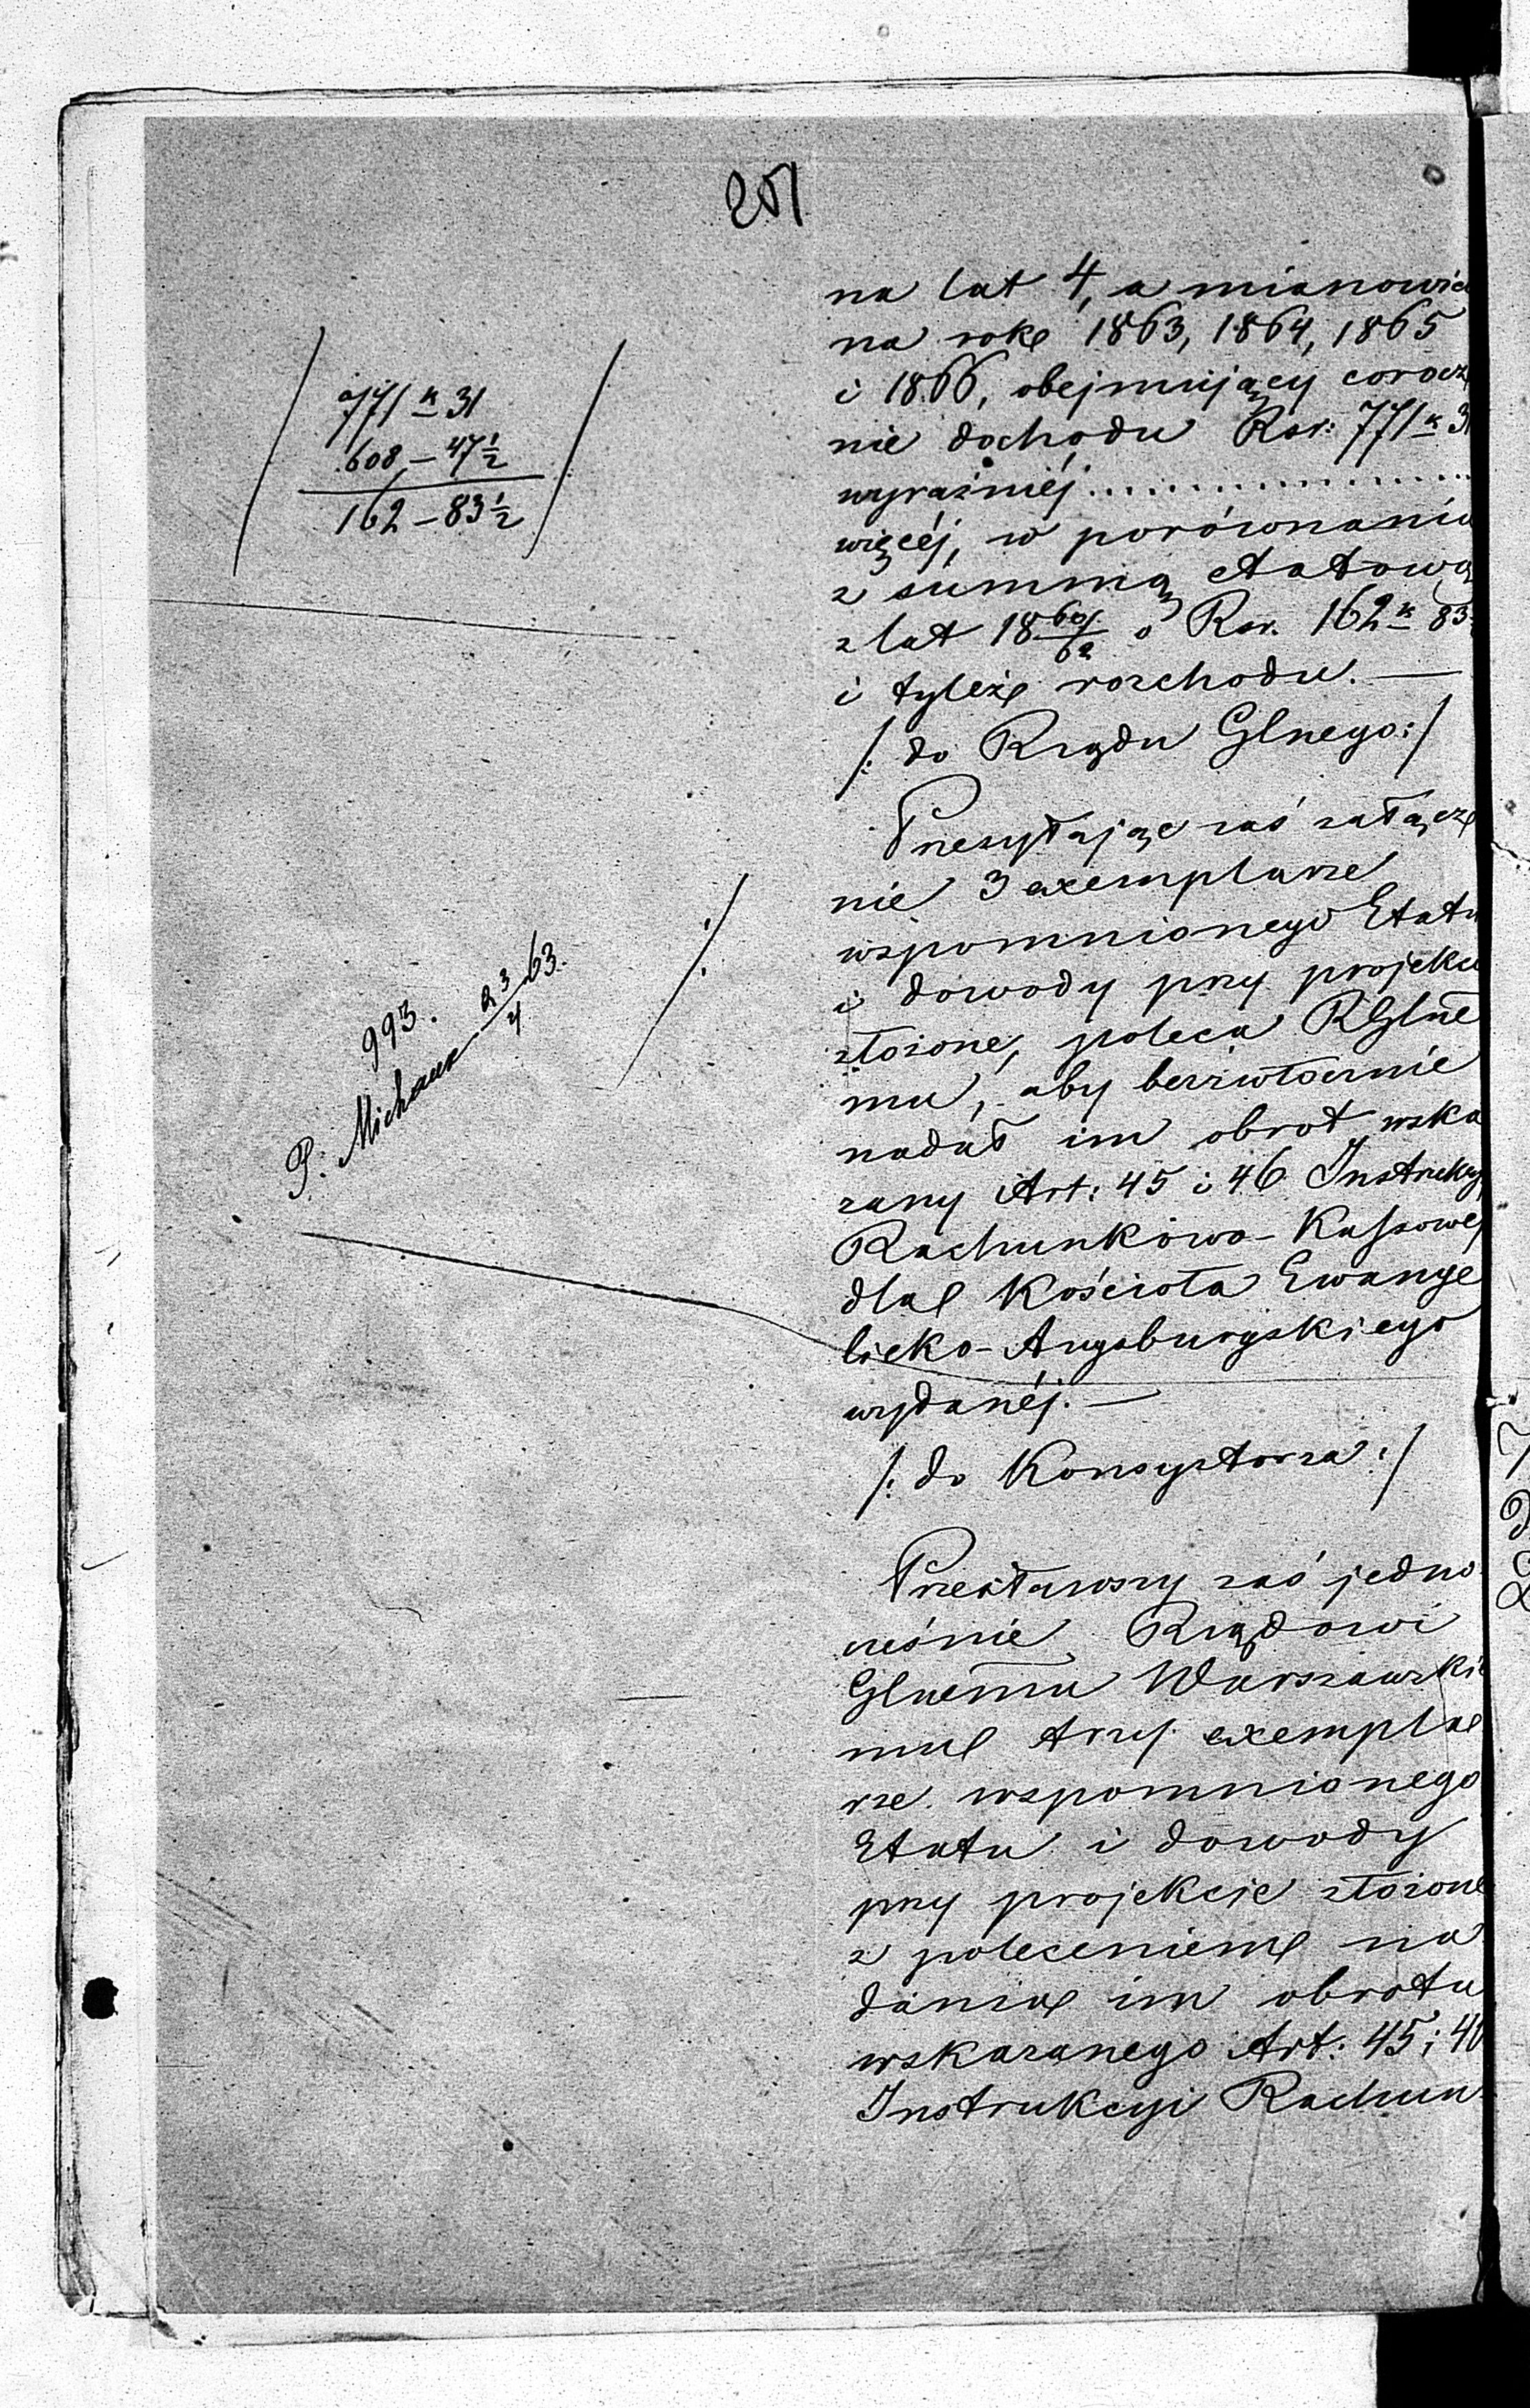 251
na lat 4, a mianowicie
na rok 1863, 1864, 1865
i 1866, obejmujący corocz
nie dochodu Rsr: 771 k 31
wyraźniéj..................
więcéj, w porównaniu
z summą etatową
z lat 18 60/62 o Rsr. 162 k 83½
i tyleż rozchodu. —
/: do Rządu Glnego :/
Przesyłając zaś załącz
nie 3 exemplarze
wspomnionego Etatu
i dowody przy projekcie
złożone, poleca RGlne
mu, aby bezzwłocznie
nadał im obrot wska
zany Art: 45 i 46 Instrukcyi
Rachunkowo-Kassowej
dla Kościoła Ewange
licko-Augsburgskiego
wydanéj. —
/: do Konsystorza :/
Przesławszy zaś jedno
cześnie Rządowi
Glnemu Warszawskie
mu trzy exempla
rze wspomnionego
Etatu i dowody
przy projekcie złożone
z poleceniem na
dania im obrotu
wskazanego Art: 45 i 46
Instrukcyi Rachun
771 k 31
608 – 47½
162 – 83½
993.
P. Michaux 23/4 63.